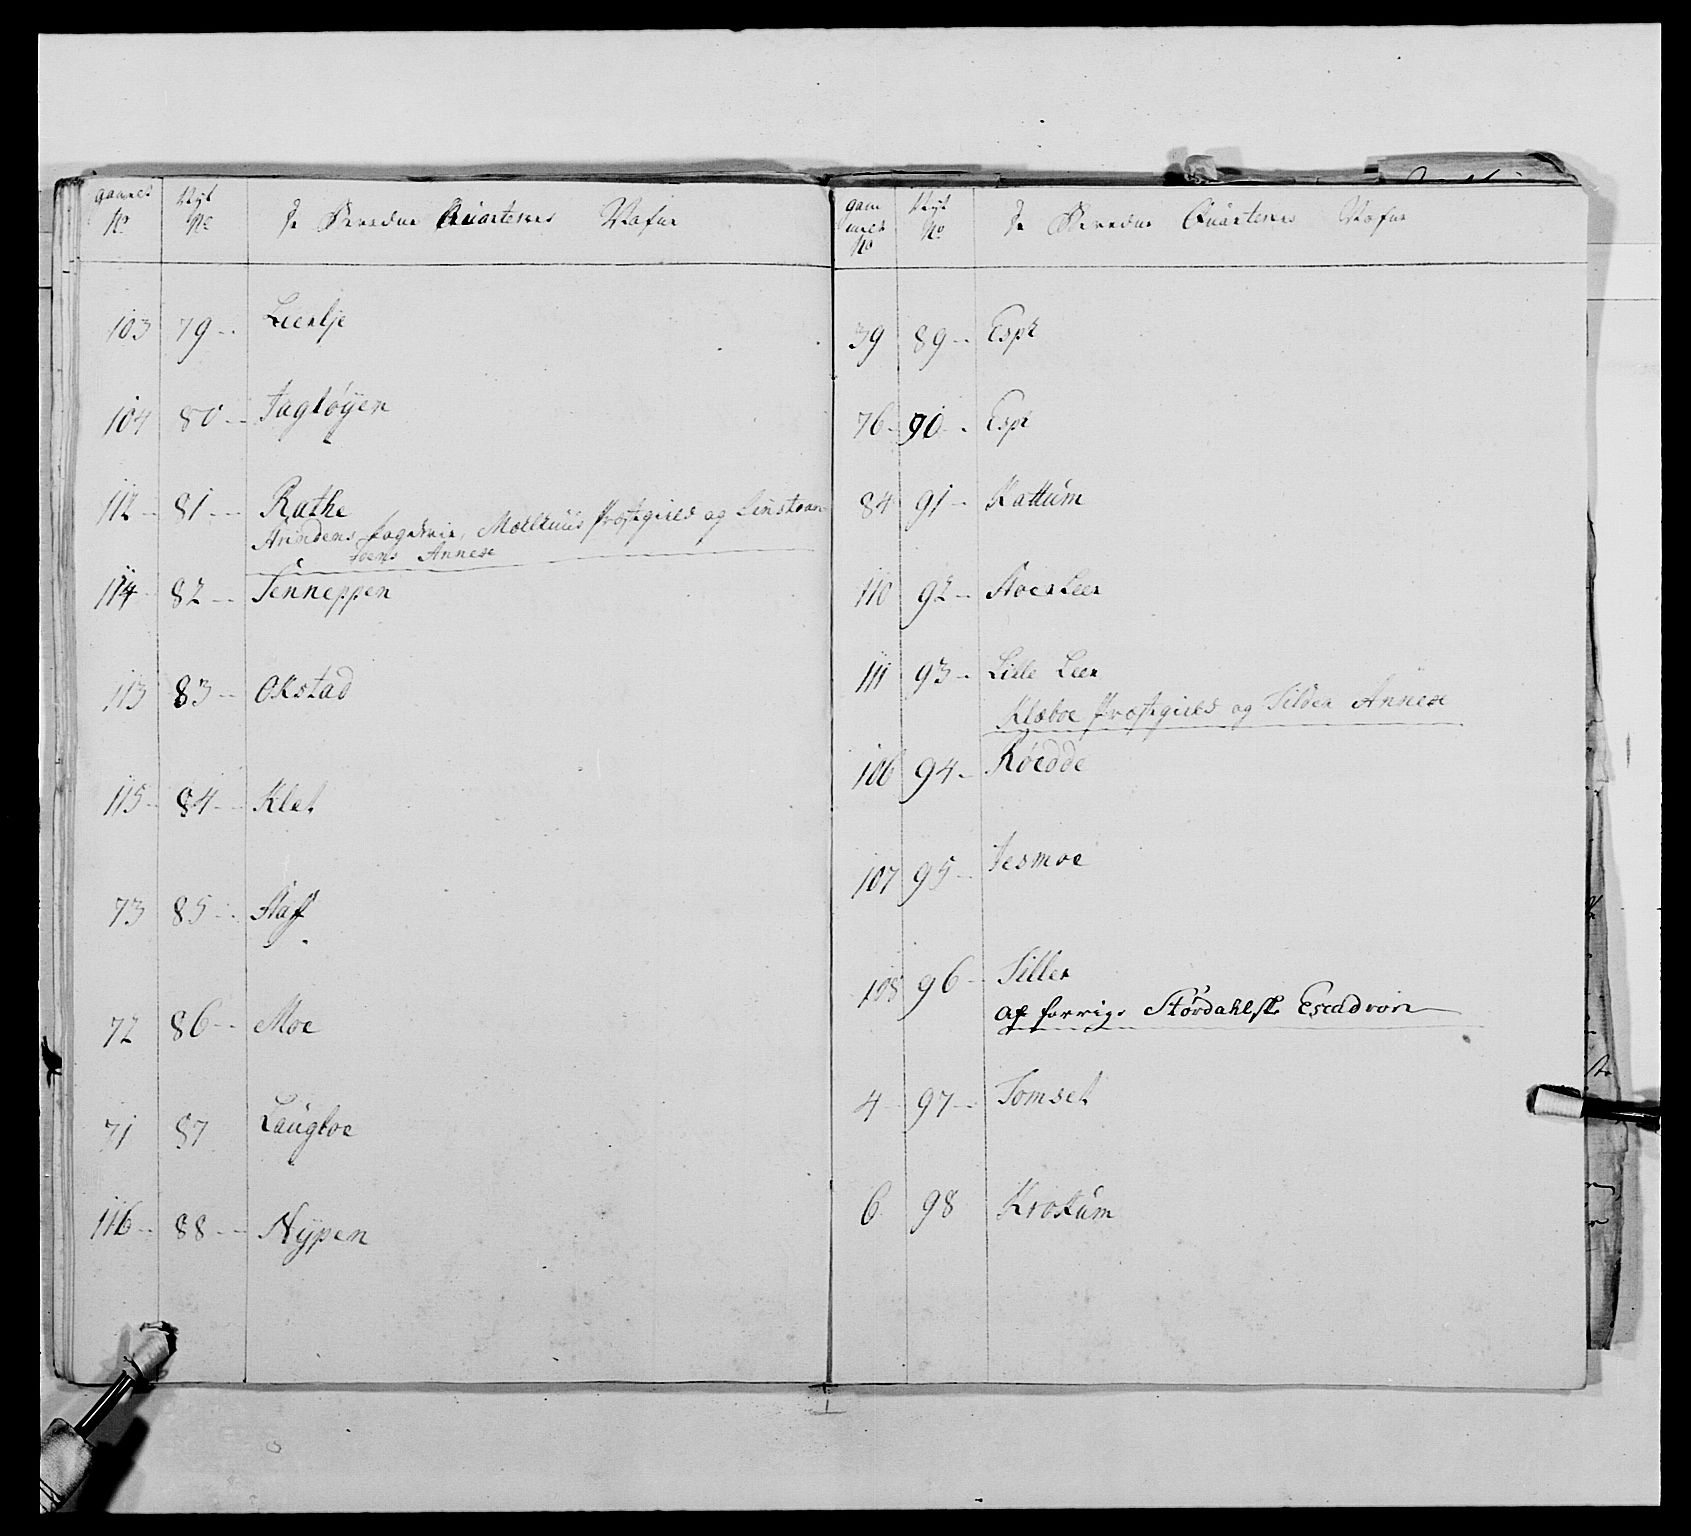 gammel No | Nyt No | De Beredne Quarterers Nafne
103 79 Leerlje
104 80 Fagløyen
112 81 Rathe
Strindens Fogderie, Mælhuus Præstegield og Leinstran-
dens Annex
114 82 Tenneppen
113 83 Okstad
115 84 Klet
73 85 Staff
72 86 Moe
71 87 Laugloe
116 88 Nÿpen
gam mel No | Nyt No | De Beredne Quarterers Nafne
39 89 Espe
76 90 Espe
84 91 Kattum
110 92 Stoer Leer
111 93 Lille Leer
Klæboe Præstegield og Tilder Annex
106 94 Røedde
107 95 Tesmoe
108 96 Tiller
af forrige Størdahlske Escadron
4 97 Tomset
6 98 Krokum